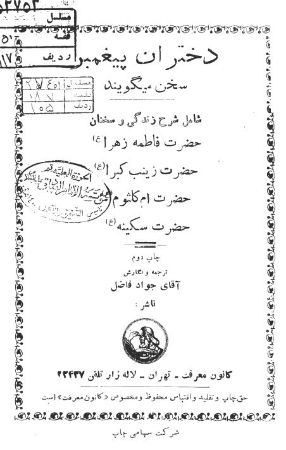 ۵۲۷۵۲
مسلسل
قفسه
ردیف
دختران پیغمبر
سخن میگویند
ردیف ۱۵۵
شامل شرح زندگی و سخنان
حضرت فاطمه زهرا (ع)
حضرت زینب کبرا (ع)
حضرت ام کلثوم
حضرت سکینه (ع)
چاپ دوم
ترجمه و نگارش
آقای جواد فاضل
ناشر :
کانون معرفت - تهران - لاله زار تلفن ۳۲۴۳۷
حق چاپ و تقلید و اقتباس محفوظ و مخصوص «کانون معرفت» است
شرکت سهامی چاپ